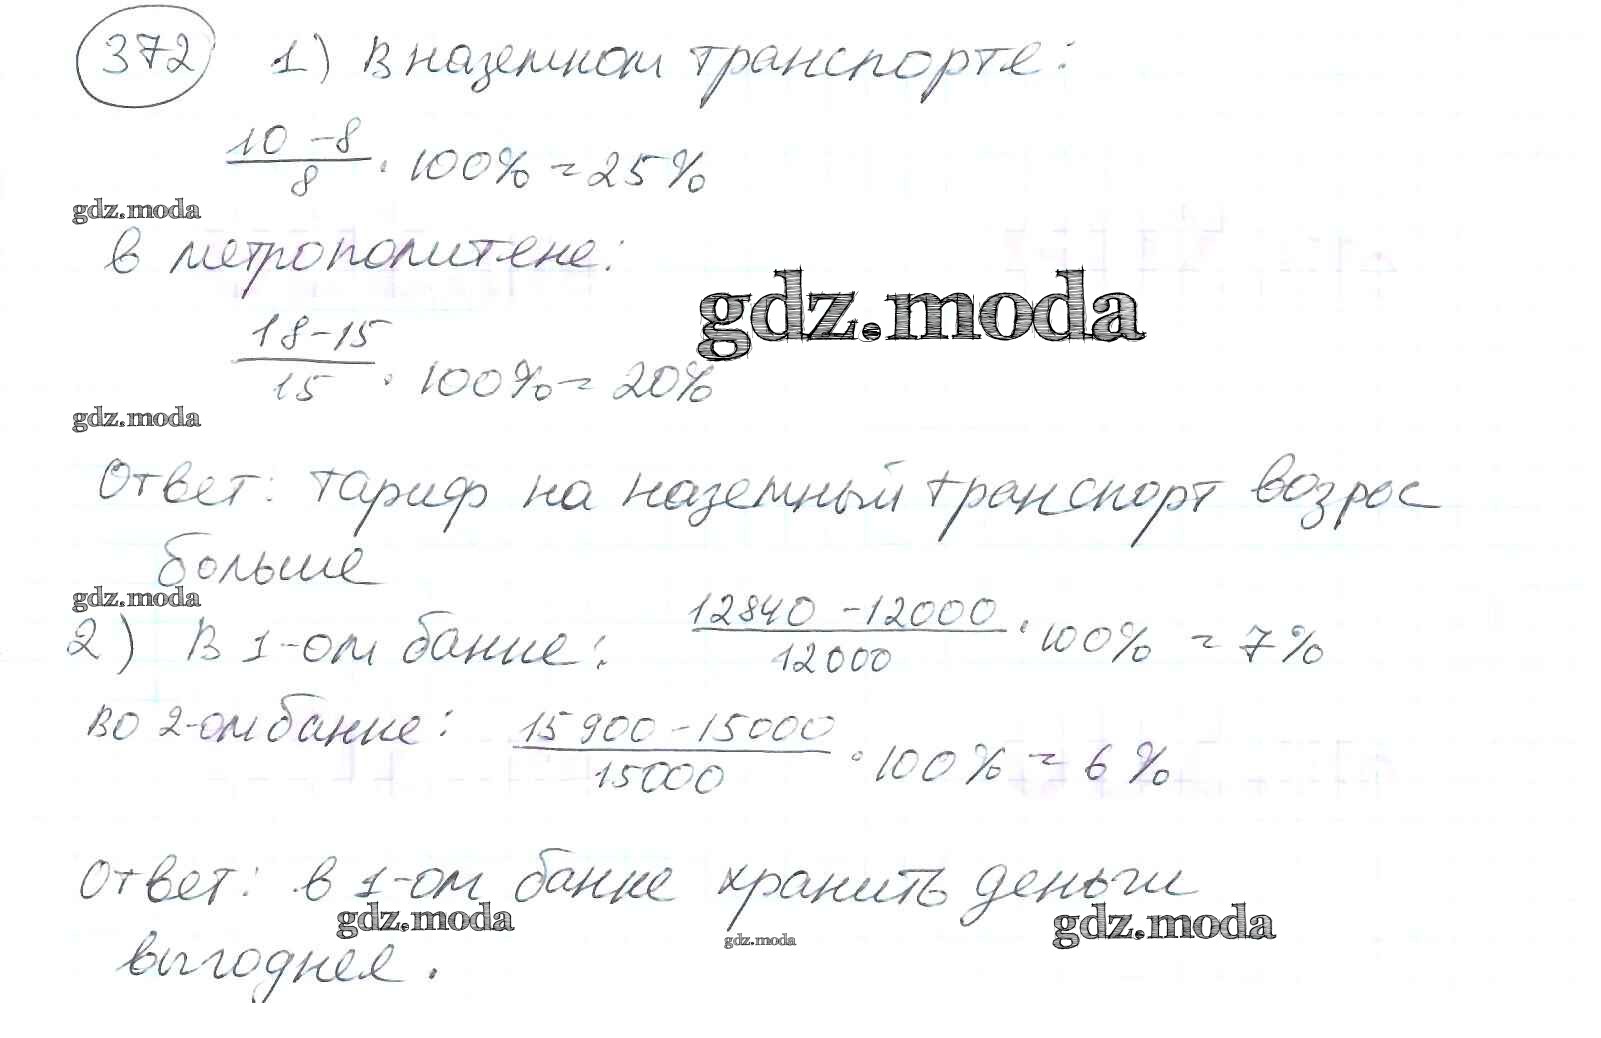 372 1) В наземном транспорте:
10 - 8
8 · 100% = 25%
gdz.moda
в метрополитене:
gdz.moda
18 - 15
15 · 100% = 20%
gdz.moda
Ответ: тариф на наземный транспорт возрос
больше
gdz.moda
2) В 1-ом банке: 12840 - 12000
12000 · 100% = 7%
во 2-ом банке: 15900 - 15000
15000 · 100% = 6%
Ответ: в 1-ом банке хранить деньги
gdz.moda gdz.moda gdz.moda
выгоднее.